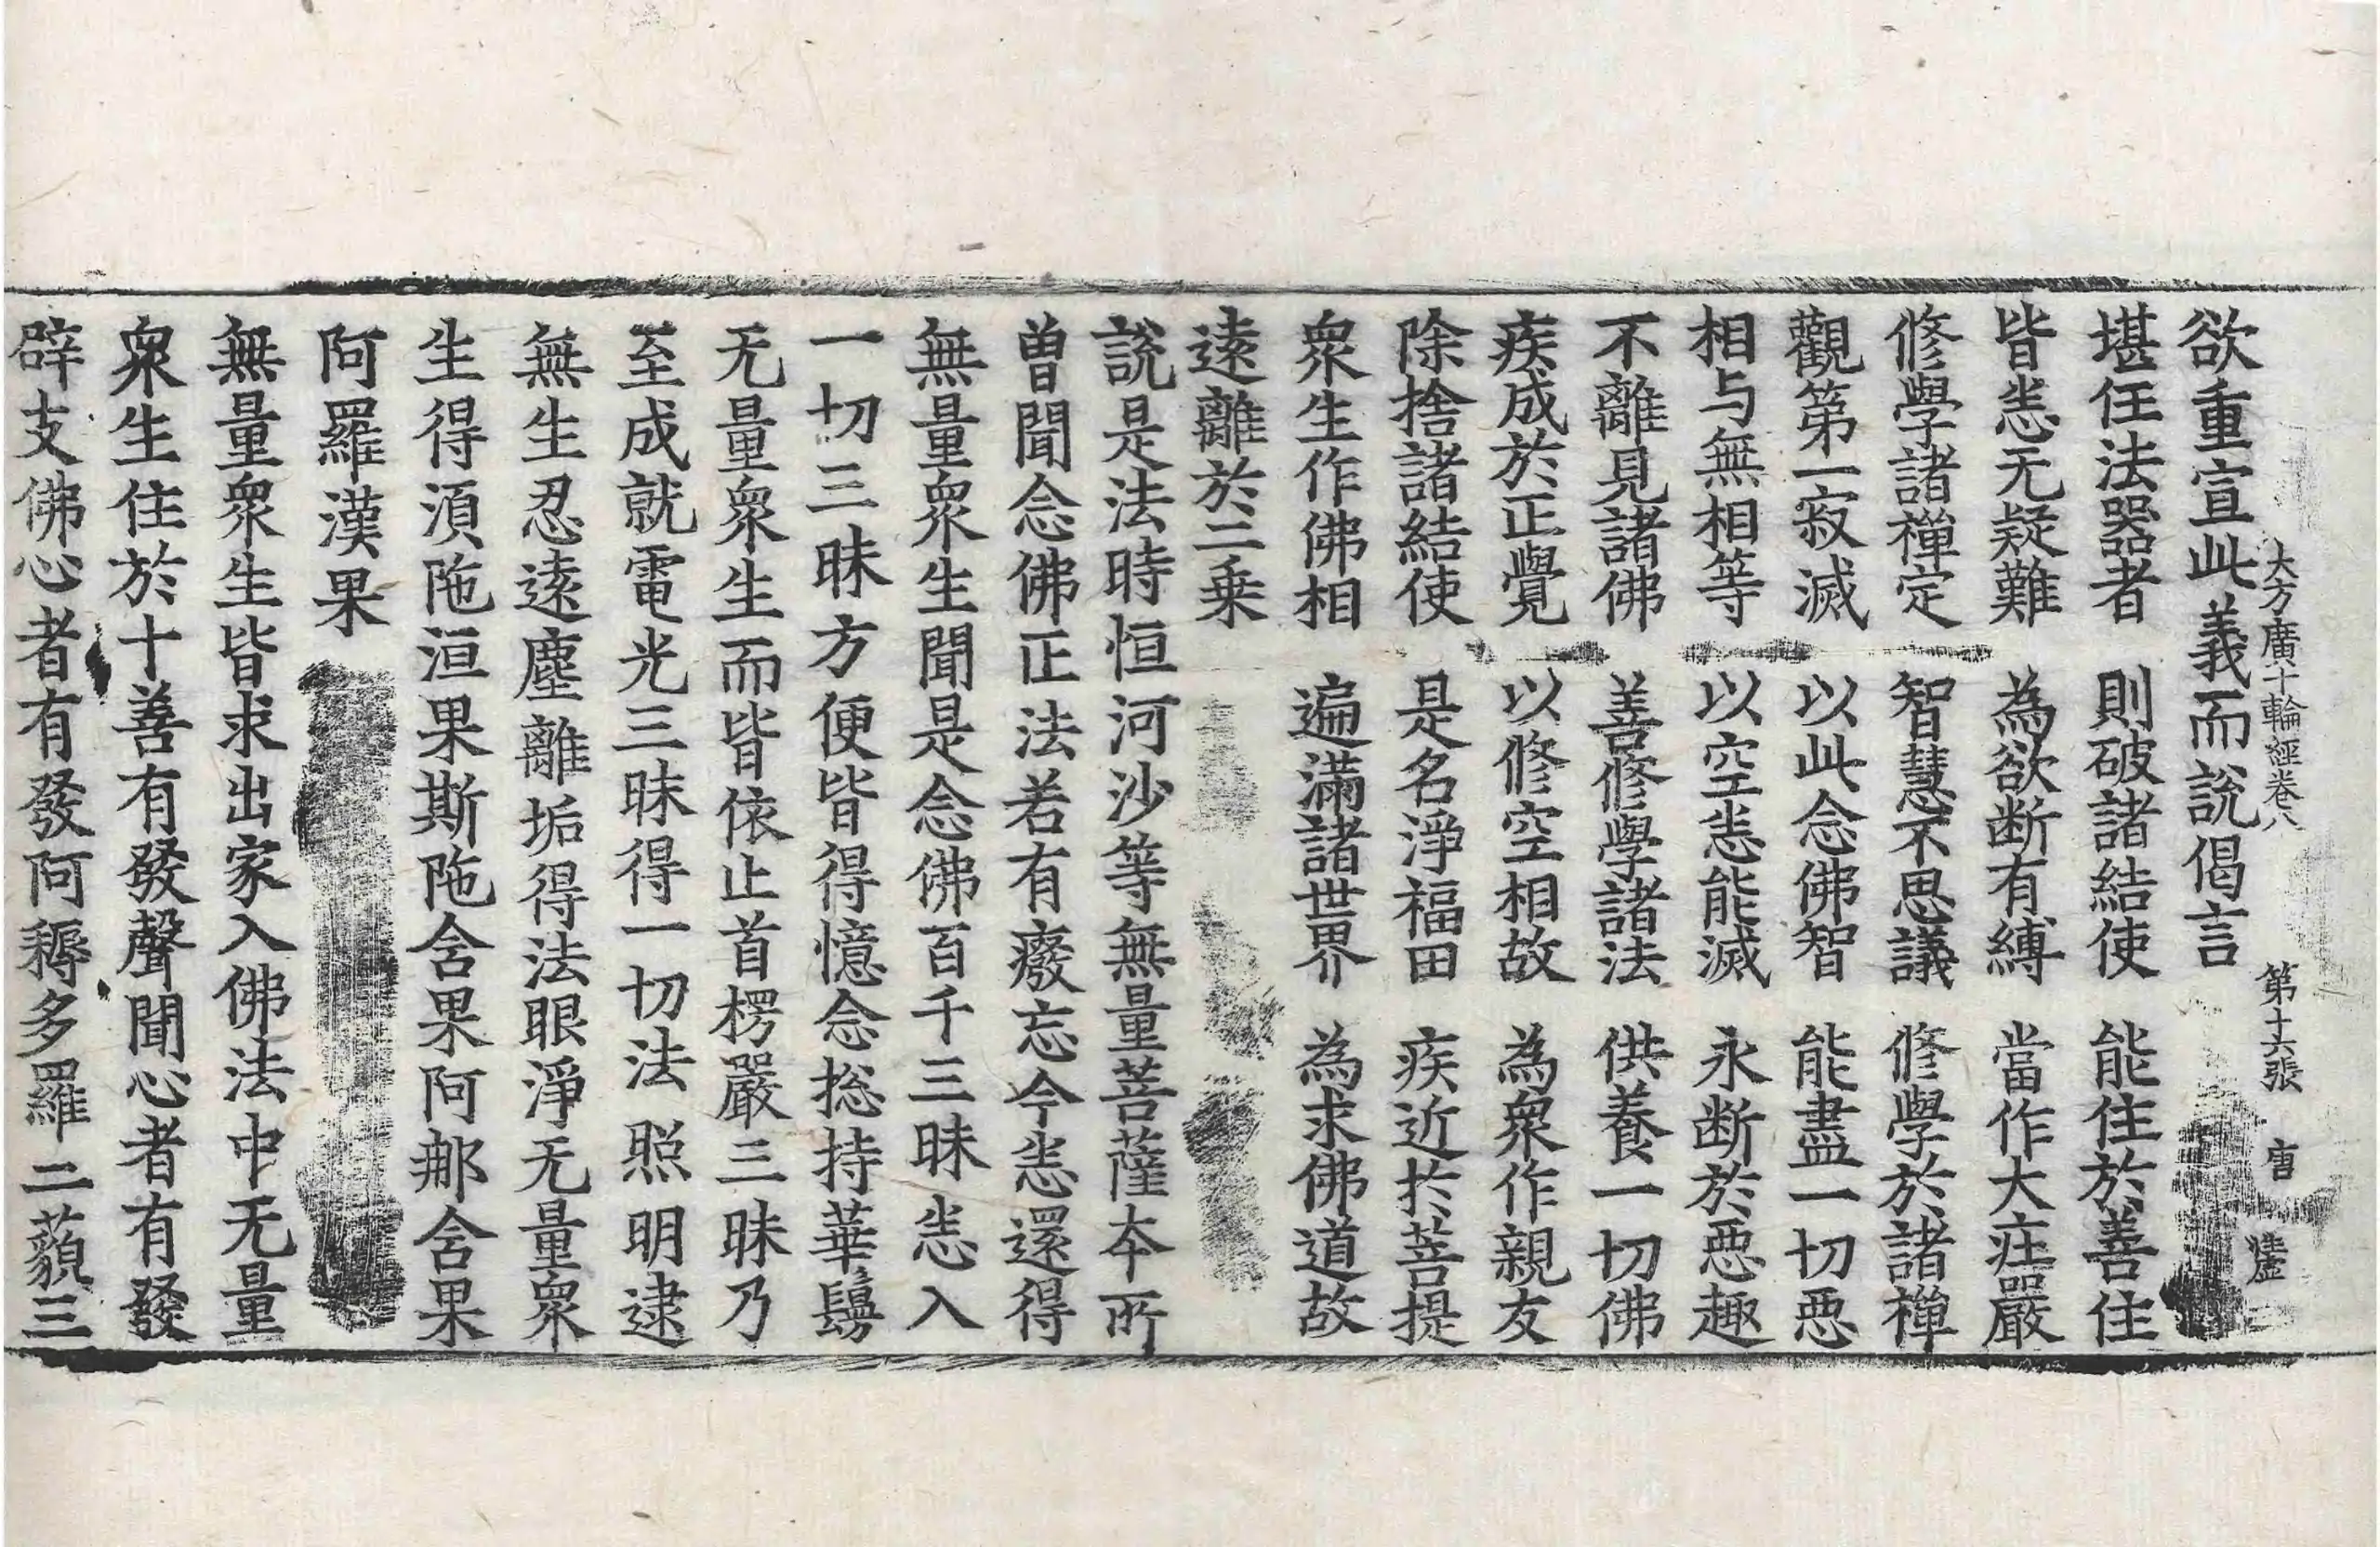 大方廣十輪經卷八 第十六張 唐 虛
欲重宣此義而說偈言
堪任法器者 則破諸結使 能住於善住
皆恙无疑難 為欲断有縛 當作大庄嚴
修學諸禪定 智慧不思議 修學於諸禪
觀第一寂滅 以此念佛智 能盡一切惡
相与無相等 以空恙能滅 永断於惡趣
不離見諸佛 善修學諸法 供養一切佛
疾成於正覺 以修空相故 為衆作親友
除捨諸結使 是名淨福田 疾近扵菩提
衆生作佛相 遍滿諸世界 為求佛道故
遠離於二乗
說是法時恒河沙等無量菩薩夲所
曾聞念佛正法若有癈忘今恙還得
無量衆生聞是念佛百千三昧恙入
一切三昧方便皆得憶念捴持華鬘
无量衆生而皆依止首楞嚴三昧乃
至成就電光三昧得一切法照明逮
無生忍遠塵離垢得法眼淨无量衆
生得湏陁洹果斯陁含果阿那含果
阿羅漢果
無量衆生皆求出家入佛法中无量
衆生住於十善有發聲聞心者有發
辟支佛心者有發阿耨多羅三藐三